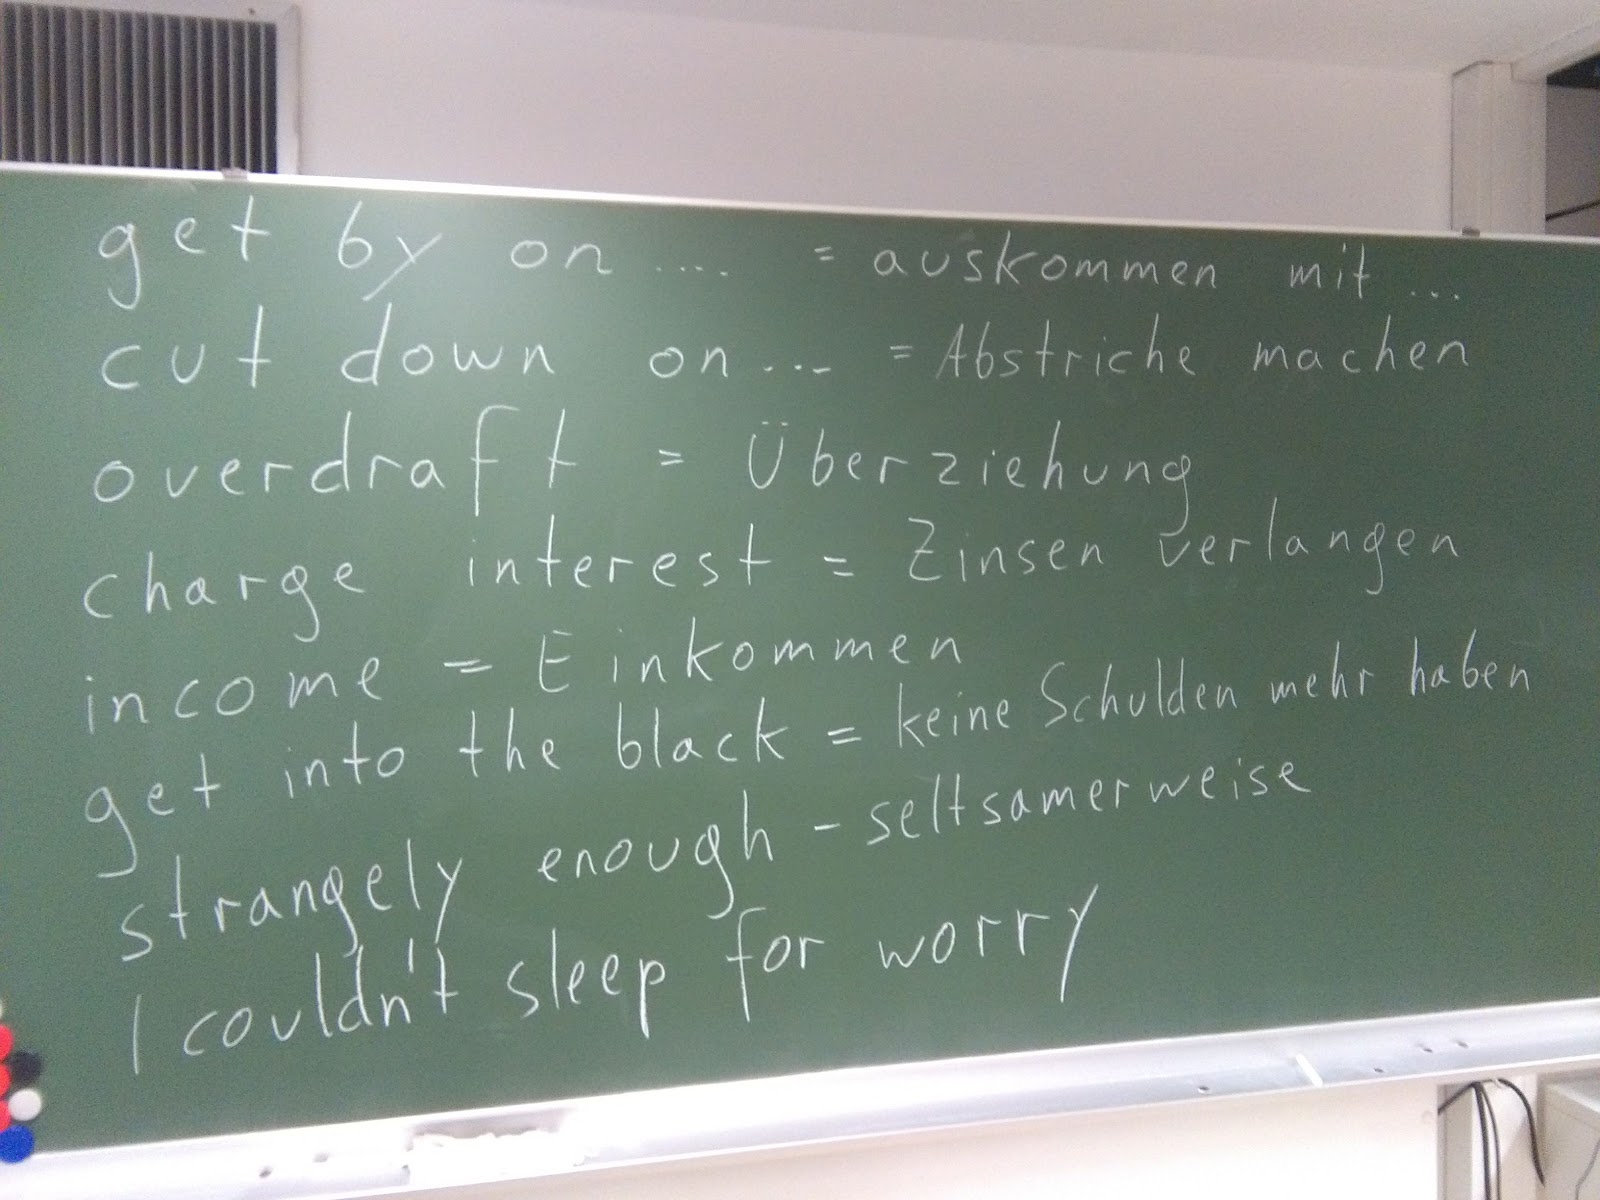 get by on .... = auskommen mit ...
cut down on ... = Abstriche machen
overdraft = Überziehung
charge interest = Zinsen verlangen
income = Einkommen
get into the black = keine Schulden mehr haben
strangely enough - seltsamerweise
I couldn't sleep for worry